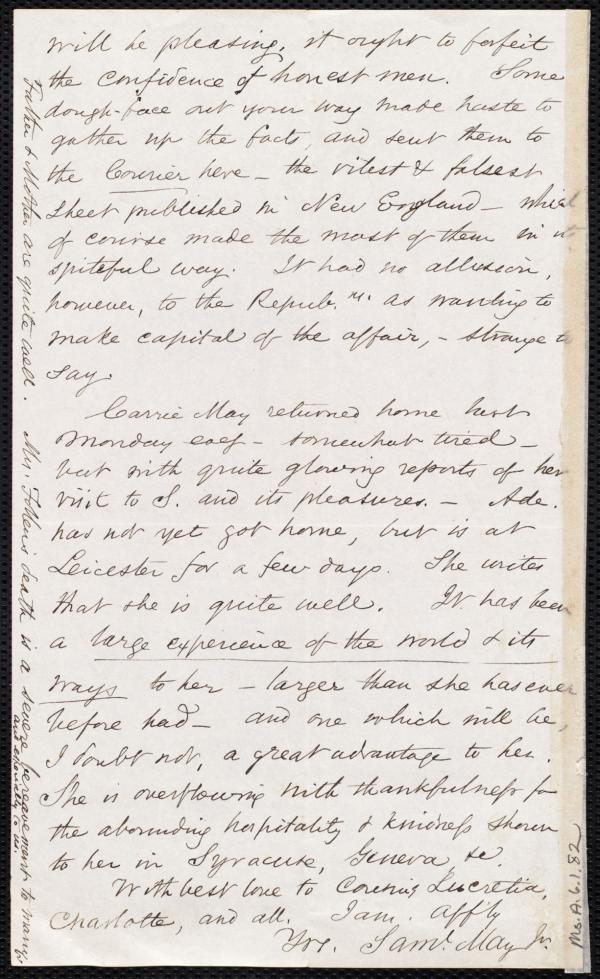 will be pleasing, it ought to forfeit
the confidence of honest men. Some
dough-face out your way made haste to
gather up the facts, and sent them to
the Courier here – the vilest & falsest
sheet published in New England – which
of course made the most of them in its
spiteful way. It had no allusion,
however, to the Repub.ⁿ as wanting to
make capital of the affair, – strange to
say.
Carrie May returned home last
Monday eveg – somewhat tired –
but with quite glowing reports of her
visit to S. and its pleasures. – Ade.
has not yet got home, but is at
Leicester for a few days. She writes
that she is quite well. It has been
a large experience of the world & its
ways to her – larger than she has ever
before had – and one which will be,
I doubt not, a great advantage to her.
She is overflowing with thankfulness for
the abounding hospitality & kindness shown
to her in Syracuse, Geneva, &c.
With best love to Cousins Lucretia,
Charlotte, and all. I am. Affly
Yrs. Saml. May Jr.
Father & Mother are quite well. Mr. Follen's death is a severe bereavement to many,
and especially to us.
Ms.A.6.1.82